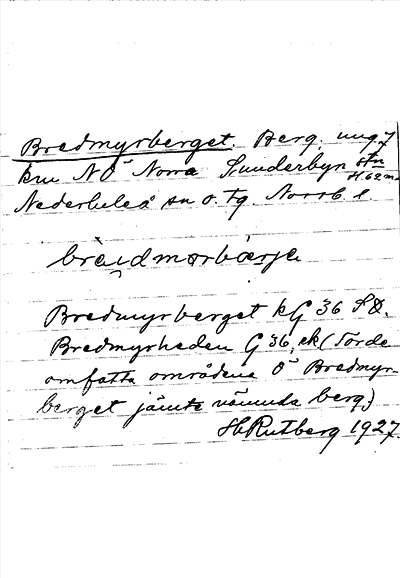 Bredmyrberget. Berg, ung 7
km NO Norra Sunderbyn stn
H. 62 m.
Nederluleå sn o. tg. Norrb. l.
Bredmyrberget kG 36 SO.
Bredmyrheden G 36, ek (Torde
omfatta områdena O Bredmyr-
berget jämte nämnda berg.)
H Rutberg 1927.